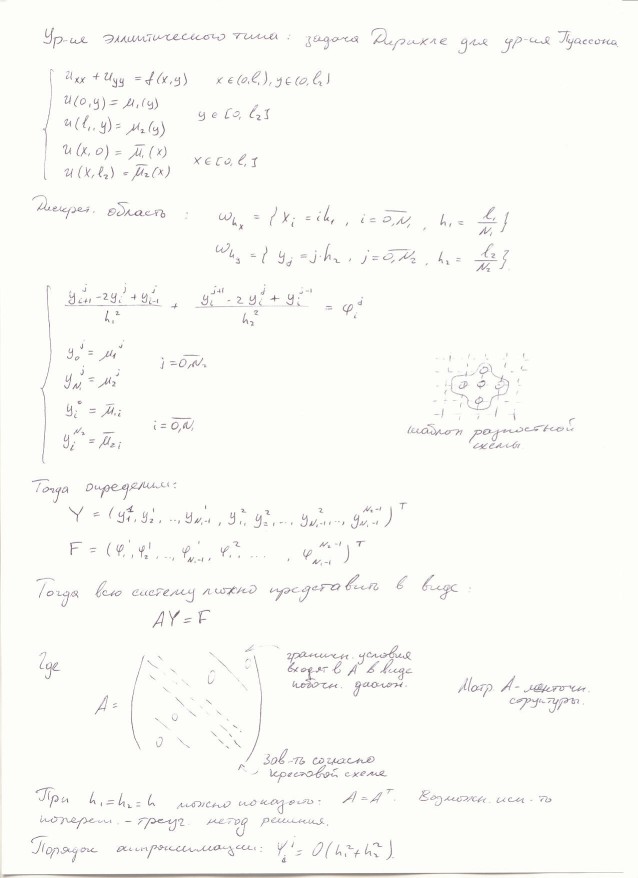 Ур-ия эллиптического типа: задача Дирихле для ур-ия Пуассона
u_xx + u_yy = f(x,y)    x∈(0,l₁), y∈(0,l₂)
u(0,y) = μ₁(y)
u(l₁,y) = μ₂(y)    y∈[0,l₂]
u(x,0) = μ̄₁(x)
u(x,l₂) = μ̄₂(x)    x∈[0,l₁]
Дискрет. область: ω_hx = {x_i = ih₁, i=0,N₁, h₁ = l₁/N₁}
ω_hy = {y_j = j·h₂, j=0,N₂, h₂ = l₂/N₂}
(y_{i+1}^j - 2y_i^j + y_{i-1}^j)/h₁² + (y_i^{j+1} - 2y_i^j + y_i^{j-1})/h₂² = φ_i^j
y_0^j = μ_1^j
y_{N₁}^j = μ_2^j    j=0,N₂
y_i^0 = μ̄_{1i}
y_i^{N₂} = μ̄_{2i}    i=0,N₁
шаблон разностной
схемы
Тогда определим:
Y = (y_1^1, y_2^1, .., y_{N₁-1}^1, y_1^2, y_2^2, .., y_{N₁-1}^2, .., y_{N₁-1}^{N₂-1})^T
F = (φ_1^1, φ_2^1, .., φ_{N₁-1}^1, φ_1^2, ...., φ_{N₁-1}^{N₂-1})^T
Тогда всю систему можно представить в виде:
AY = F
Где
A =
0
0
0
0
граничн. условия
входят в A в виде
побочн. диагон.
Матр. A - ленточн.
структуры.
Зав-ть согласно
крестовой схеме
При h₁=h₂=h можно показать: A=A^T. Возможн. исп-ть
поперем.-треуг. метод решения.
Порядок аппроксимации: ψ_i^j = O(h₁²+h₂²).